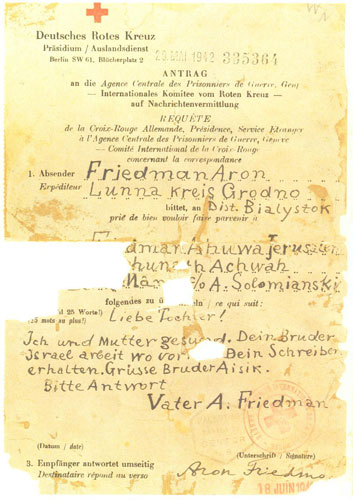 Deutsches Rotes Kreuz
Präsidium / Auslandsdienst
Berlin SW 61, Blücherplatz 2
MAI 1942 335364
ANTRAG
an die Agence Centrale des Prisonniers de Guerre, Genf
— Internationales Komitee vom Roten Kreuz —
auf Nachrichtenvermittlung
REQUÊTE
de la Croix-Rouge Allemande, Présidence, Service Etranger
à l'Agence Centrale des Prisonniers de Guerre, Genève
— Comité International de la Croix-Rouge
concernant la correspondance
1. Absender Friedman Aron
Expéditeur Lunna Kreis Grodno
bittet, an Dist. Bialystok
prié de bien vouloir faire parvenir à
Ahuwa Jerusalem
Achwah
A. Solomianski
folgendes zu / ce qui suit:
25 Worte!)
(25 mots au plus!)
Liebe Tochter!
Ich und Mutter gesund. Dein Bruder
Israel arbeit wo vor Dein Schreiben
erhalten. Grüsse Bruder Aisik.
Bitte Antwort
Vater A. Friedman
(Datum / date)
(Unterschrift / Signature)
3. Empfänger antwortet umseitig
Destinataire répond au verso
Aron Friedma
18 JUIN 19